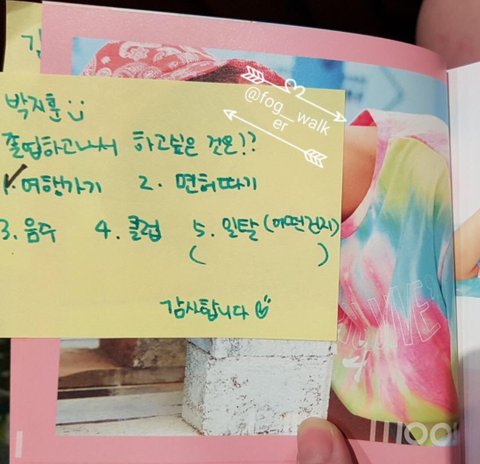 박지훈
졸업하고나서 하고싶은 것은!?
1. 여행가기 2. 면허따기
3. 음주 4. 클럽 5. 일탈 (어떤건지)
( )
감사합니다
@fog__walk
er